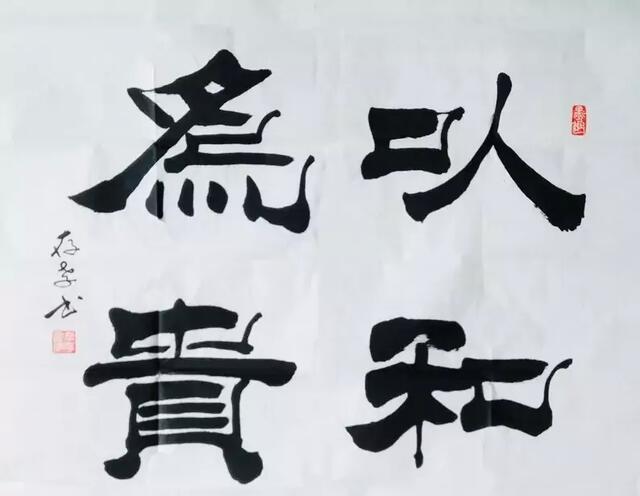 以和
為貴
存孝书